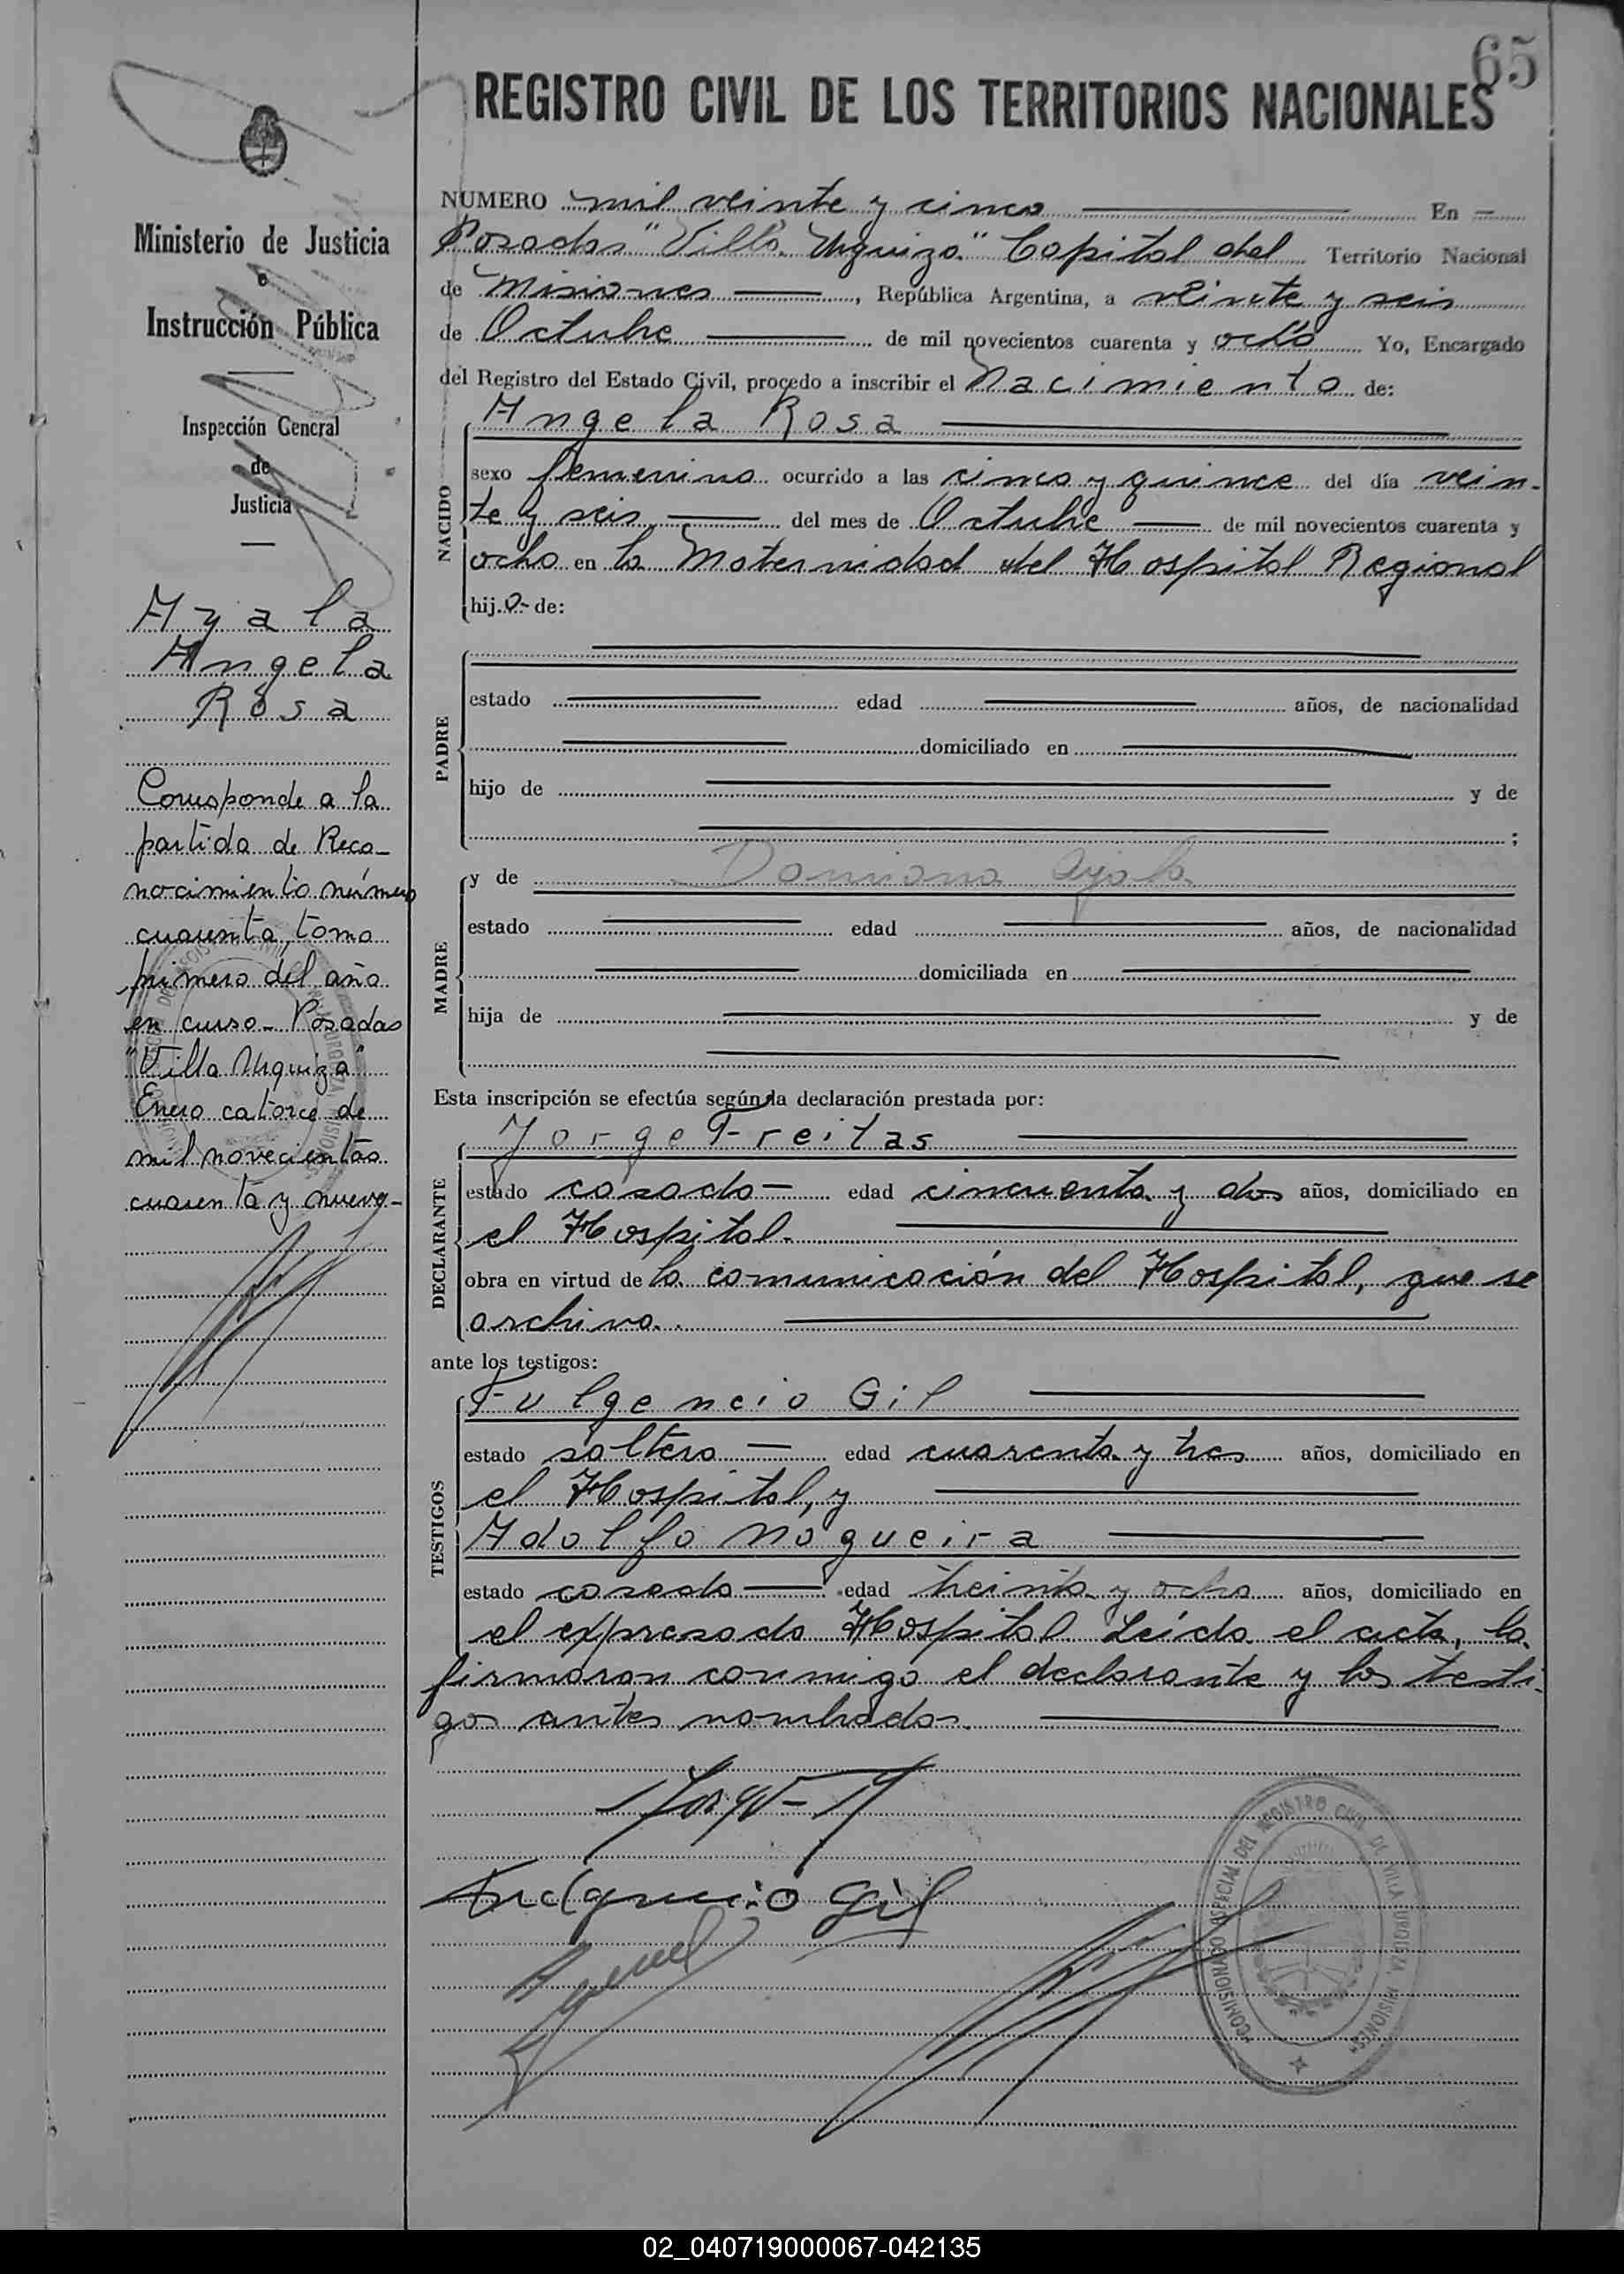 65
REGISTRO CIVIL DE LOS TERRITORIOS NACIONALES
Ministerio de Justicia
e
Instrucción Pública
Inspección General
de
Justicia
Ayala
Angela
Rosa
Corresponde a la
partida de Reco-
nocimiento número
cuarenta, tomo
primero del año
en curso - Posadas
"Villa Urquiza"
Enero catorce de
mil novecientos
cuarenta y nueve-
NUMERO mil veinte y cinco En
Posadas "Villa Urquiza" Capital del Territorio Nacional
de Misiones, República Argentina, a veinte y seis
de Octubre de mil novecientos cuarenta y ocho Yo, Encargado
del Registro del Estado Civil, procedo a inscribir el Nacimiento de:
NACIDO
Angela Rosa
sexo femenino ocurrido a las cinco y quince del día vein-
te y seis del mes de Octubre de mil novecientos cuarenta y
ocho en la Maternidad del Hospital Regional
hija de:
PADRE
estado edad años, de nacionalidad
domiciliado en
hijo de y de
;
MADRE
y de Damiana Ayala
estado edad años, de nacionalidad
domiciliada en
hija de y de
Esta inscripción se efectúa según la declaración prestada por:
DECLARANTE
Jorge Freitas
estado casado edad cincuenta y dos años, domiciliado en
el Hospital.
obra en virtud de la comunicación del Hospital, que se
archiva.
ante los testigos:
TESTIGOS
Fulgencio Gil
estado soltero edad cuarenta y tres años, domiciliado en
el Hospital, y
Adolfo Nogueira
estado casado edad treinta y ocho años, domiciliado en
el expresado Hospital. Leída el acta, la
firmaron conmigo el declarante y los testi-
gos antes nombrados.
Fulgencio Gil
COMISIONADO ESPECIAL DEL REGISTRO CIVIL DE VILLA URQUIZA MISIONES
02_040719000067-042135